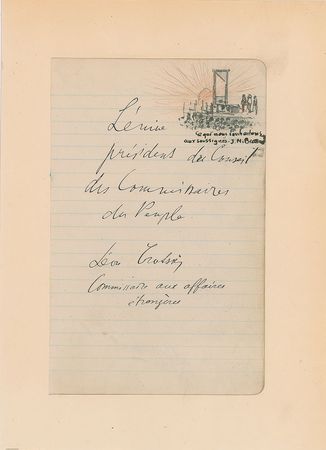 ce que nous souhaitons
aux soussignés - J.N.
Lénine
président du Conseil
des Commissaires
du Peuple
Léon Trotsky
Commissaire aux affaires
étrangères